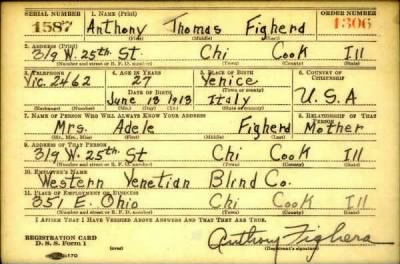 SERIAL NUMBER 1. NAME (Print) ORDER NUMBER
1587 Anthony Thomas Figherd 1306
(First) (Middle) (Last)
2. ADDRESS (Print)
319 W. 25th St. Chi Cook Ill
(Number and street or R. F. D. number) (Town) (County) (State)
3. TELEPHONE 4. AGE IN YEARS 5. PLACE OF BIRTH 6. COUNTRY OF CITIZENSHIP
Vic. 2462 27 Venice
DATE OF BIRTH (Town or county)
June 13 1913 Italy U.S.A
(Exchange) (Number) (Mo.) (Day) (Yr.) (State or country)
7. NAME OF PERSON WHO WILL ALWAYS KNOW YOUR ADDRESS 8. RELATIONSHIP OF THAT PERSON
Mrs. Adele Figherd Mother
(Mr., Mrs., Miss) (First) (Middle) (Last)
9. ADDRESS OF THAT PERSON
319 W. 25th St Chi Cook Ill
(Number and street or R. F. D. number) (Town) (County) (State)
10. EMPLOYER'S NAME
Western Venetian Blind Co.
11. PLACE OF EMPLOYMENT OR BUSINESS
351 E. Ohio Chi Cook Ill
(Number and street or R. F. D. number) (Town) (County) (State)
I AFFIRM THAT I HAVE VERIFIED ABOVE ANSWERS AND THAT THEY ARE TRUE.
REGISTRATION CARD
D. S. S. Form 1 (over) Anthony Fighera
(Registrant's signature)